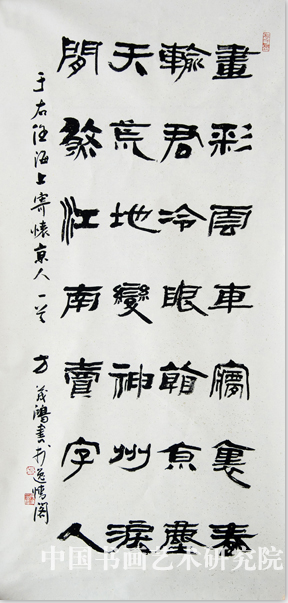 畫彩雲車夢裏春
輸君冷眼看京塵
天荒地變神州淚
間煞江南賣字人
于右任海上寄懷京人一首 方茂鴻書於逸情閣
中国书画艺术研究院